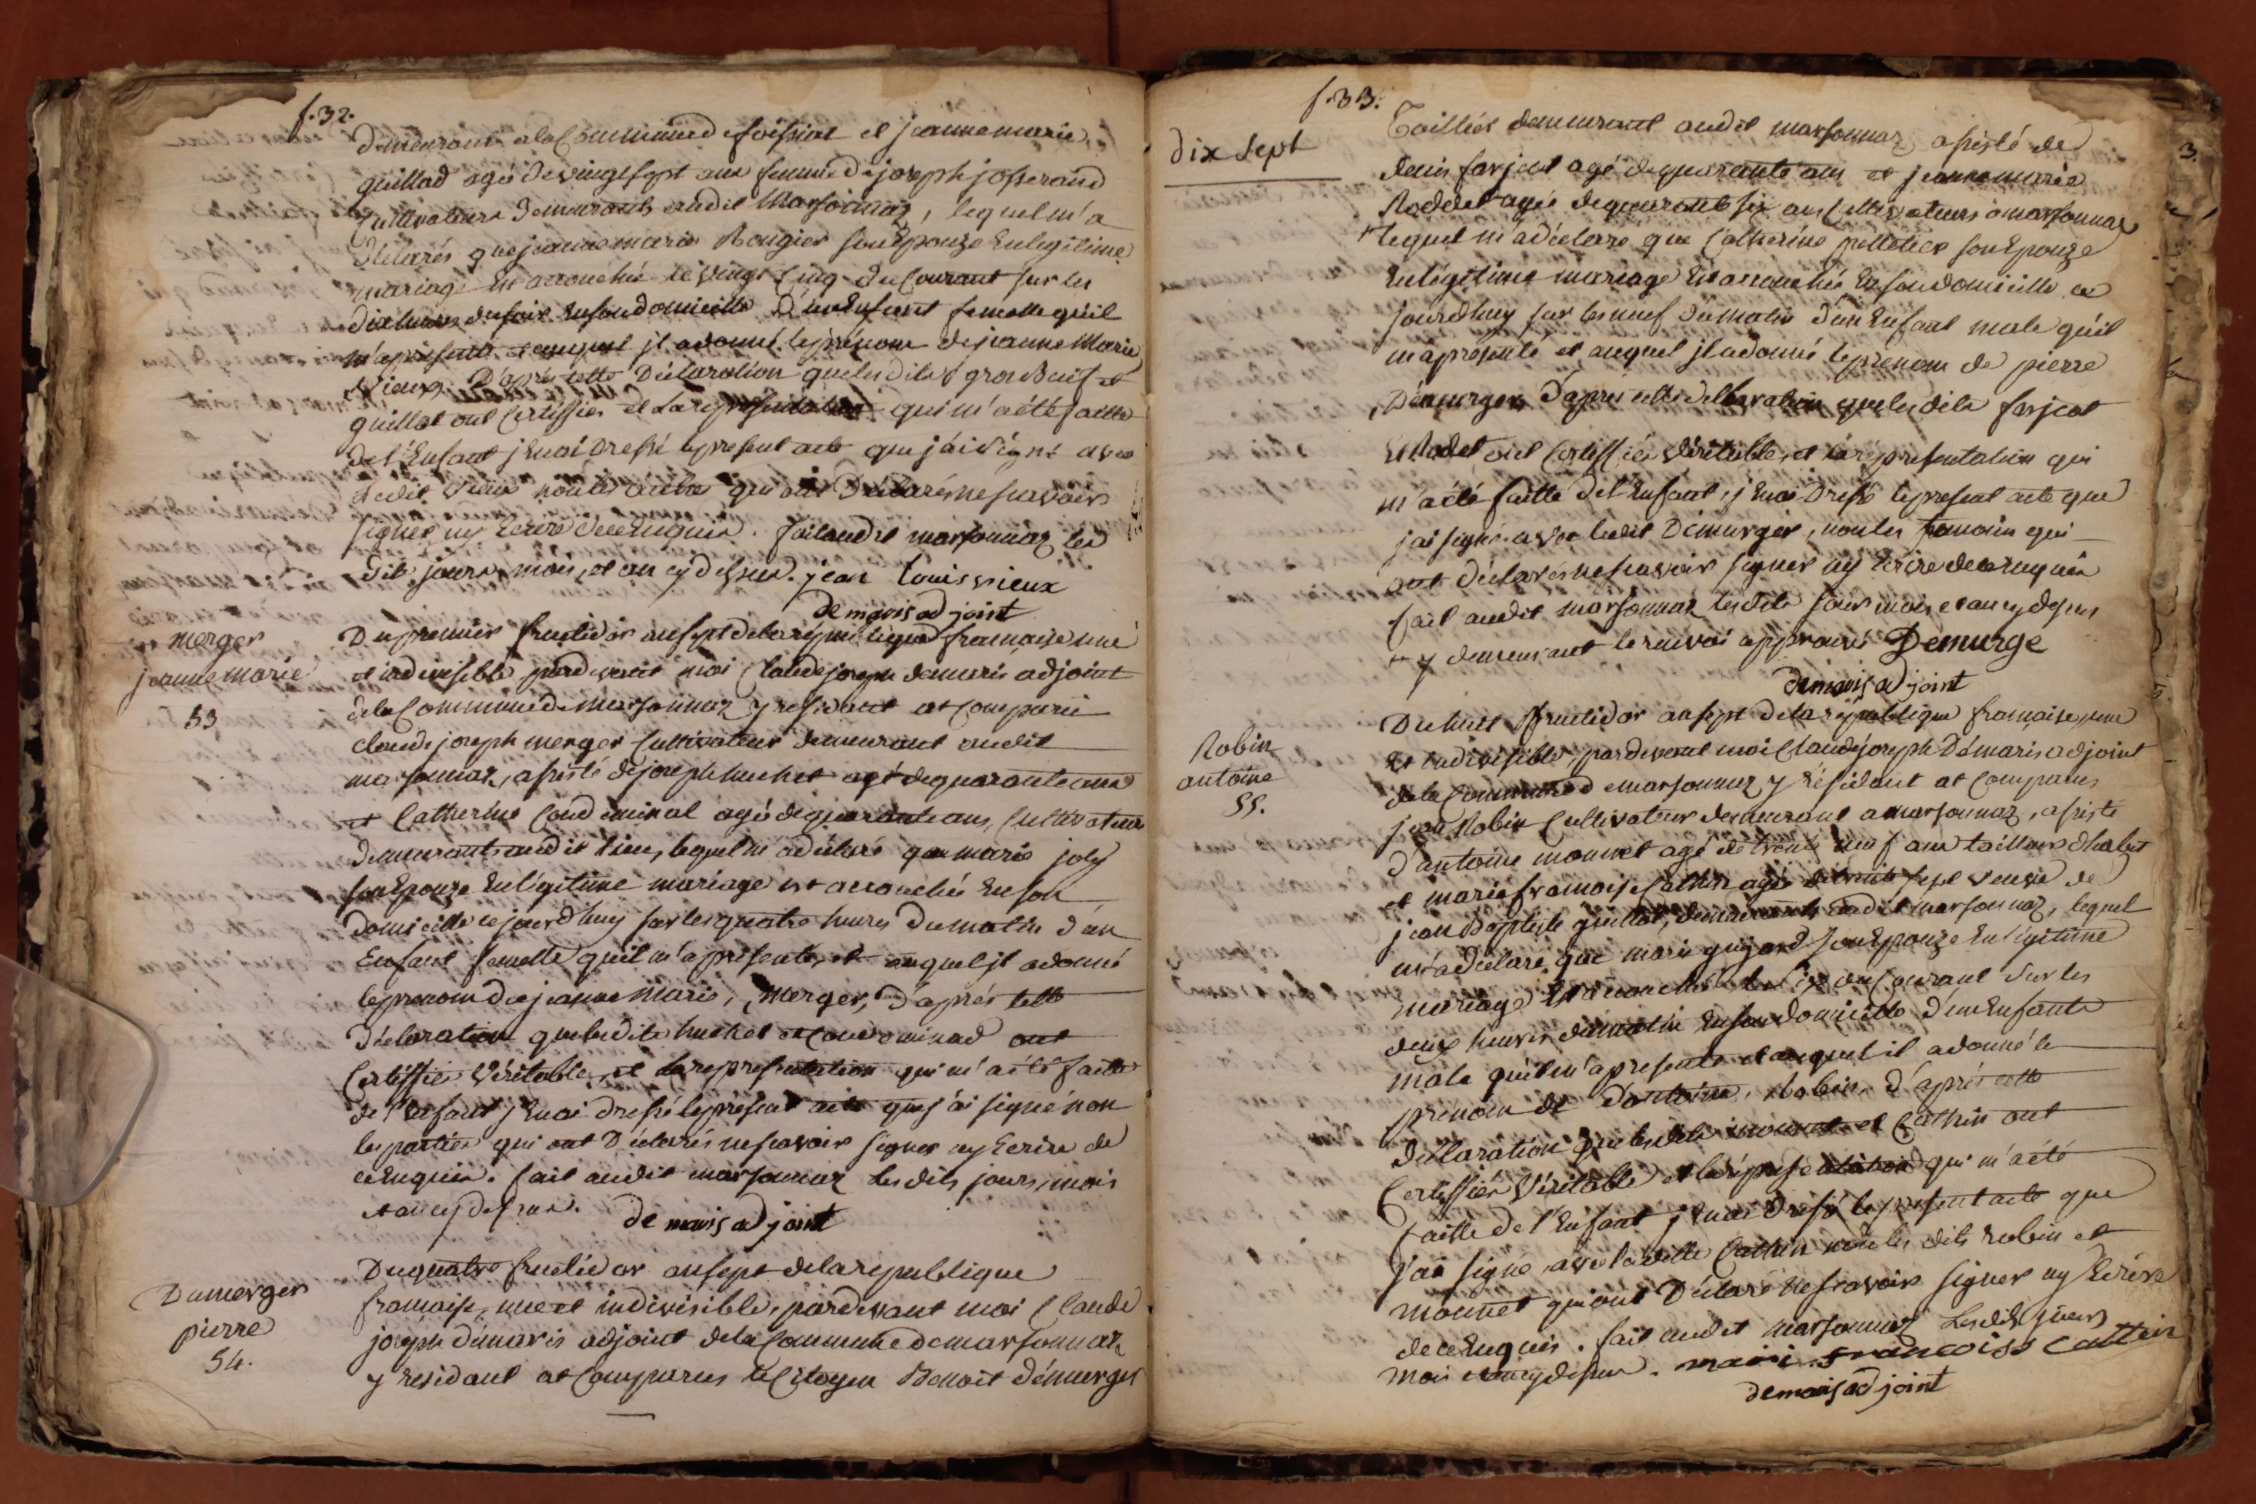 f. 32.
demeurant a la Commune de foissiat et jeanne marie
guillad agée de vingt sept ans femme de joseph josserand
Cultivateurs demeurants audit Marsonnaz, lequel m'a
déclarés que jeanne marie Rougier son Epouze En legitime
mariage Est accouchée le vingt Cinq du Courant sur les
dix heures du soir En son domicille d'un Enfant femelle qu'il
m'a présenté et auquel jl a donné le prénom de jeanne Marie
Vieux. D'après cette Déclaration que lesdits gros Buis et
guillat ont Certiffiés et la representation qui m'a été faitte
de l'Enfant j'En ai Dressé le present acte que j'ai signé avec
ledit Vieux non les autres qui ont Déclarés ne scavoir
signer ny Ecrire de ce Enquis. fait audit marsonnaz les
dits jours, mois, et an cy dessus. jean Louis vieux
demaris adjoint
merger
jeanne marie
53
Du premier fructidor an sept de la republique francaise une
et indivisible pardevant moi Claude joseph demaris adjoint
de la Commune de Marsonnaz y residant at Comparu
claude joseph merger Cultivateur demeurant audit
marsonnaz, assisté de joseph huchet agé de quarante ans
et Catherine Condeminal agée de quarante ans, Cultivateurs
demeurants audit lieu, lequel m'a déclaré que marie joly
son Epouze En légitime mariage est accouchée En son
domicille ce jourd'huy sur les quatre heures du matin d'un
Enfant femelle qu'il m'a présenté, et auquel jl a donné
le prenom de jeanne Marie, Merger, d'après cette
déclaration que lesdits huchet et Condominad ont
Certiffiés Véritable, et la representation qui m'a été faitte
de l'Enfant j'En ai dressé le present acte que j'ai signé non
les parties qui ont Déclarés ne scavoir signer ny Ecrire de
ce Enquis. fait audit marsonnaz les dits jours, mois
et an cy dessus. demaris adjoint
Dumerger
pierre
54.
Du quatre fructidor an sept de la republique
francaise, une et indivisible, pardevant moi Claude
joseph dumaris adjoint de la Commune de marsonnaz
y residant at Comparus le Citoyen Benoit démurger
f. 33.
dix sept
Tailliér demeurant audit marsonnaz assisté de
denis farjeat agé de quarante ans et jeanne marie
Rodet agée de quarante six ans Cultivateurs a marsonnaz
lequel m'a déclaré que Catherine pelletier son Epouze
En légitime mariage Est accouchée En son domicille ce
jourd'huy sur les neuf du matin d'un Enfant male qu'il
m'a présenté et auquel jl a donné le prenom de pierre
Démurger, d'après cette déclaration que lesdits farjeat
Et Rodet ont Certiffiés Véritable, et la représentation qui
m'a été faitte de l'Enfant, j'En ai Dressé le present acte que
j'ai signé avec ledit Démurger, non les temoins qui
ont déclarés ne scavoir signer ny Ecrire de ce enquis
fait audit marsonnaz lesdits jour mois et an cy dessus
y demeurant le renvoi approuvé Demurge
demaris adjoint
Robin
antoine
55.
Du huit fructidor an sept de la république francaise, une
Et Indivisible, pardevant moi Claude joseph Démaris adjoint
de la Commune de marsonnaz y résidant at Comparus
jean Robin Cultivateur demeurant a marsonnaz, assisté
d'antoine monnet agé de trente neuf ans tailleur d'habit
et marie francoise Cathin agée de trente sept veuve de
jean Baptiste guillot, demeurants audit marsonnaz, lequel
m'a déclaré que marie gujard son Epouze En légitime
mariage Est accouchée le six du Courant sur les
deux heures du matin En son domicille d'un Enfants
male qu'il m'a presenté et auquel il a donné le
prenom de d'antoine, Robin, d'après cette
déclaration que lesdits monnet et Cathin ont
Certiffiés Véritable et la répresentation qui m'a été
faitte de l'Enfant j'En ai Dressé le present acte que
j'ai signé, avec la ditte Cathin non les dits Robin et
monnet qui ont Déclaré ne scavoir signer ny Ecrire
de ce Enquis. fait audit marsonnaz Lesdits jours
mois et an cy dessus. marie francoise Cattin
demaris adjoint